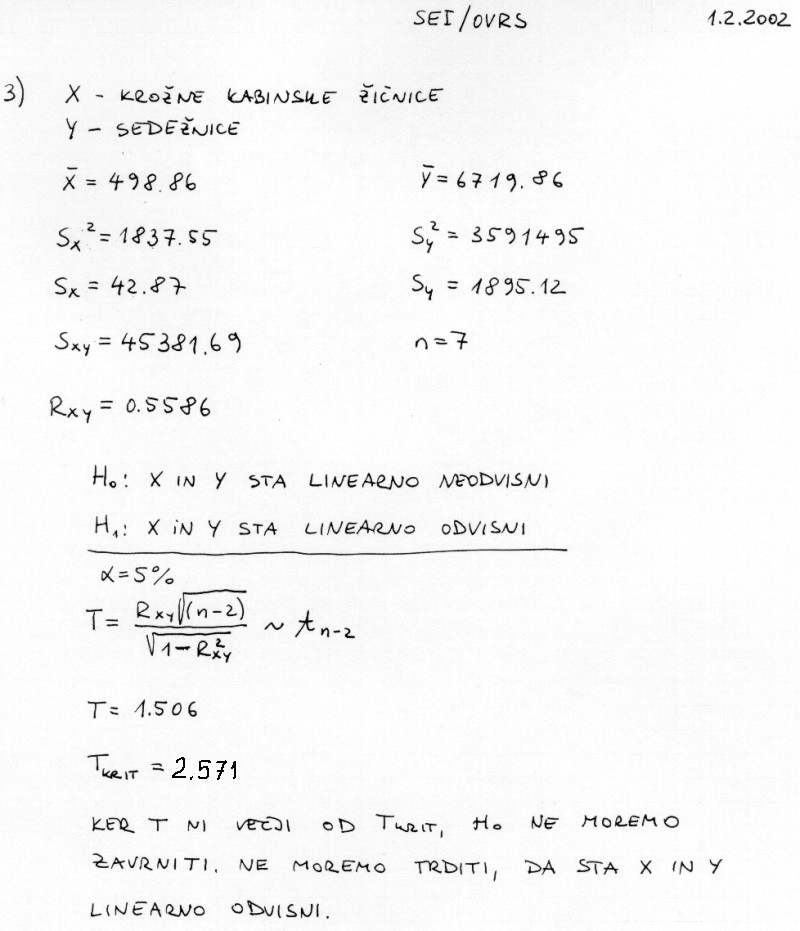 SEI/OVRS 1.2.2002
3) X - KROŽNE KABINSKE ŽIČNICE
Y - SEDEŽNICE
X̄ = 498.86 ȳ = 6719.86
Sx² = 1837.55 Sy² = 3591495
Sx = 42.87 Sy = 1895.12
Sxy = 45381.69 n = 7
Rxy = 0.5586
H₀: X IN Y STA LINEARNO NEODVISNI
H₁: X IN Y STA LINEARNO ODVISNI
α = 5%
T = Rxy√(n-2) / √1-R²xy ~ tn-2
T = 1.506
TKRIT = 2.571
KER T NI VEČJI OD TKRIT, H₀ NE MOREMO
ZAVRNITI. NE MOREMO TRDITI, DA STA X IN Y
LINEARNO ODVISNI.